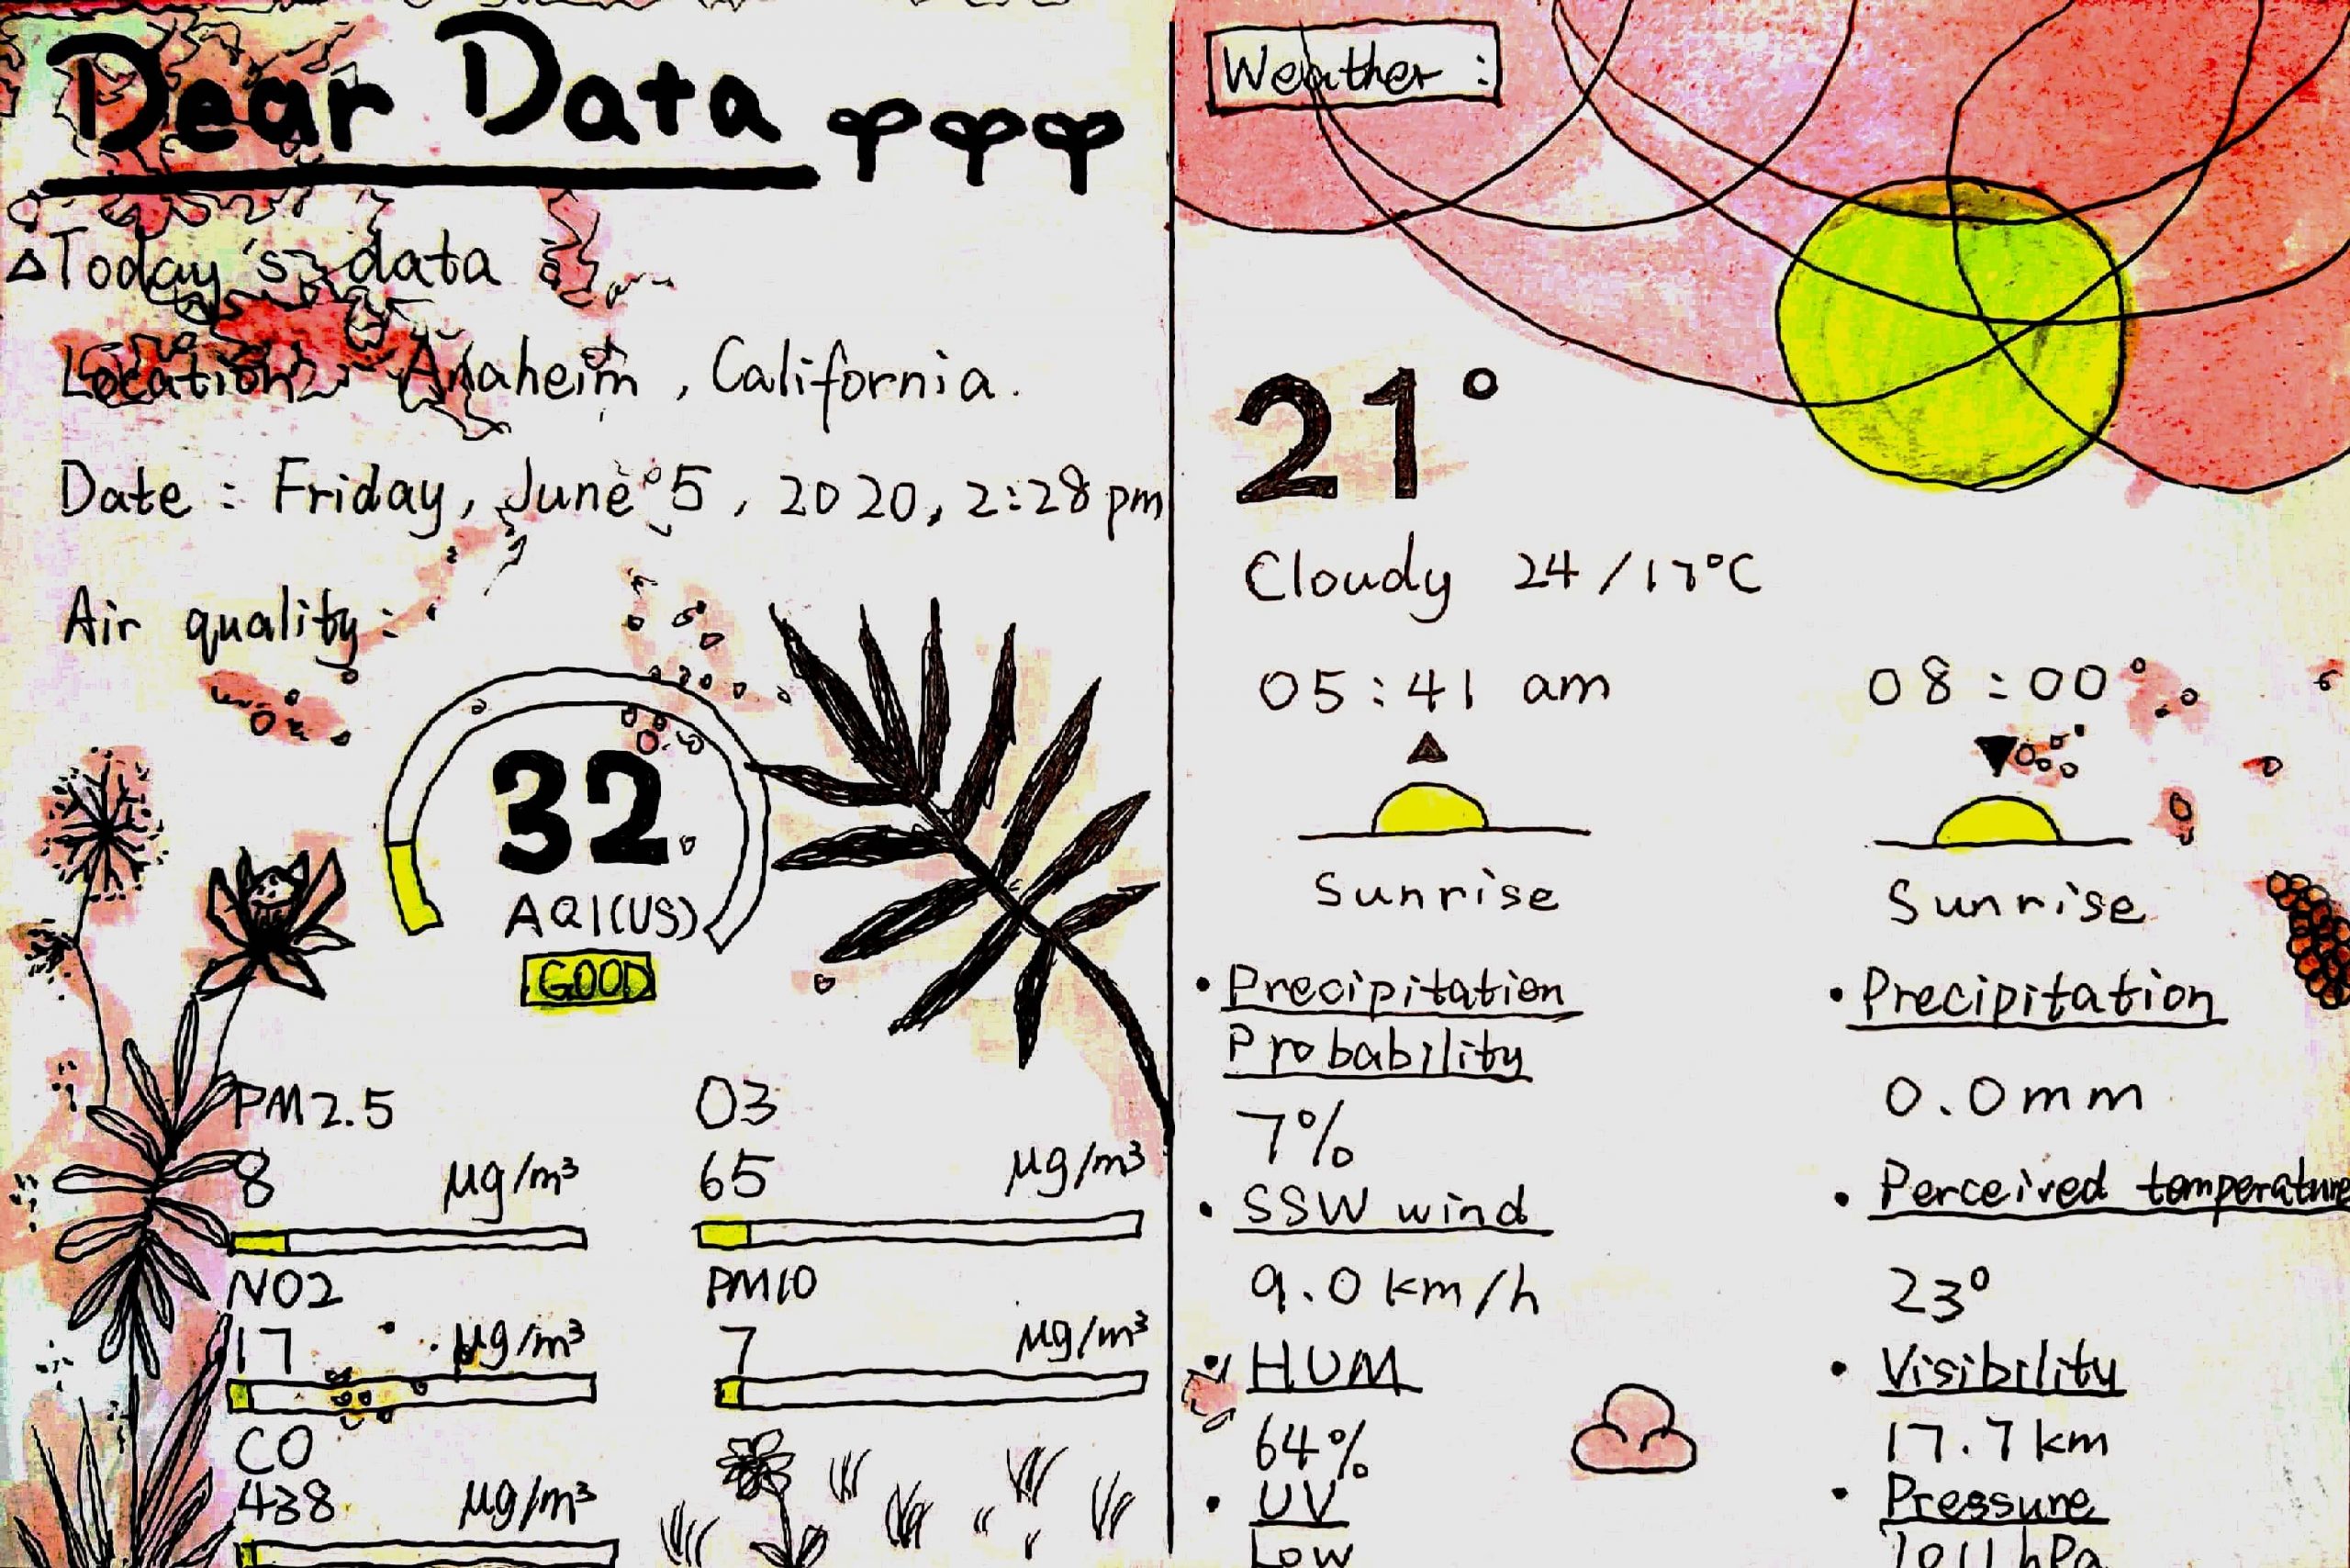 Dear Data
Today's data
Location: Anaheim, California.
Date: Friday, June 5, 2020, 2:28 pm
Air quality:
32
AQI(US)
GOOD
PM2.5
8 μg/m³
O3
65 μg/m³
NO2
17 μg/m³
PM10
7 μg/m³
CO
438 μg/m³
Weather:
21°
Cloudy 24/17°C
05:41 am
Sunrise
08:00
Sunrise
• Precipitation
Probability
7%
• SSW wind
9.0 km/h
• HUM
64%
• UV
Low
• Precipitation
0.0mm
• Perceived temperature
23°
• Visibility
17.7 km
• Pressure
1011 hPa